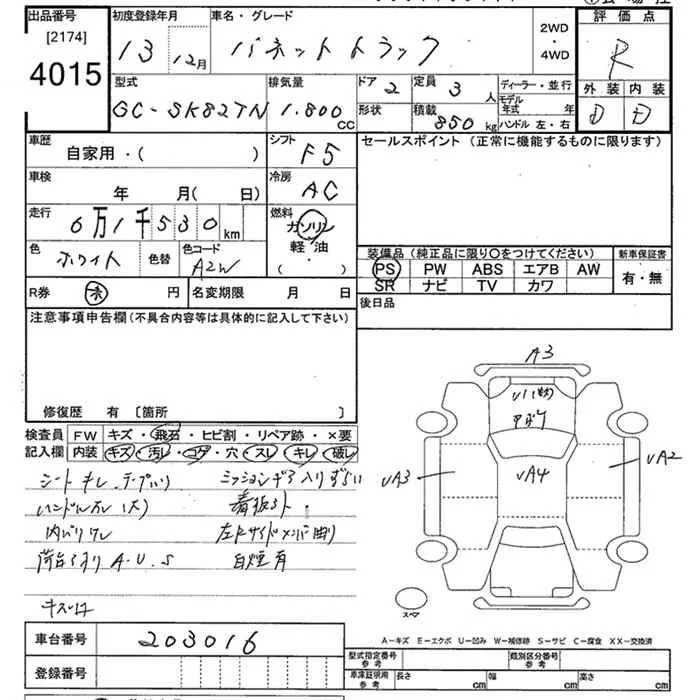 出品番号 初度登録年月 車名・グレード 2WD 評価点
[2174] 13 12月 バネットトラック ・ R
4015 4WD
型式 排気量 ドア 2 定員 3人 ディーラー・並行 外装 内装
GC-SK82TN 1.800 CC 形状 積載 850 kg モデル年式 年 D D
ハンドル 左・右
車歴 シフト F5 セールスポイント (正常に機能するものに限ります)
自家用・( )
車検 冷房 AC
年 月( 日)
走行 6万1千530km 燃料 ガソリン
軽油
( )
色 ホワイト 色替 色コード A2W
装備品 (純正品に限り〇をつけてください) 新車保証書
PS PW ABS エアB AW 有・無
SR ナビ TV カワ
R券 円 名変期限 月 日 後日品
注意事項申告欄(不具合内容等は具体的に記入して下さい)
修復歴 有 [箇所 ]
検査員 FW キズ・飛石・ヒビ割・リペア跡・×要
記入欄 内装 キズ・汚レ・コゲ・穴・スレ・キレ・破レ
シートキレ テープハリ ミッションギア入りずらい
ハンドルスレ(大)
内バリワレ
荷台 A.U.S 白煙有
A3
U1
VA3 VA4 VA2
スペア
A-キズ E-エクボ U-凹み W-補修跡 S-サビ C-腐食 XX-交換済
車台番号 203016
登録番号
型式指定番号 参考 類別区分番号 参考
車庫証明用 参考 長さ cm 幅 cm 高さ cm